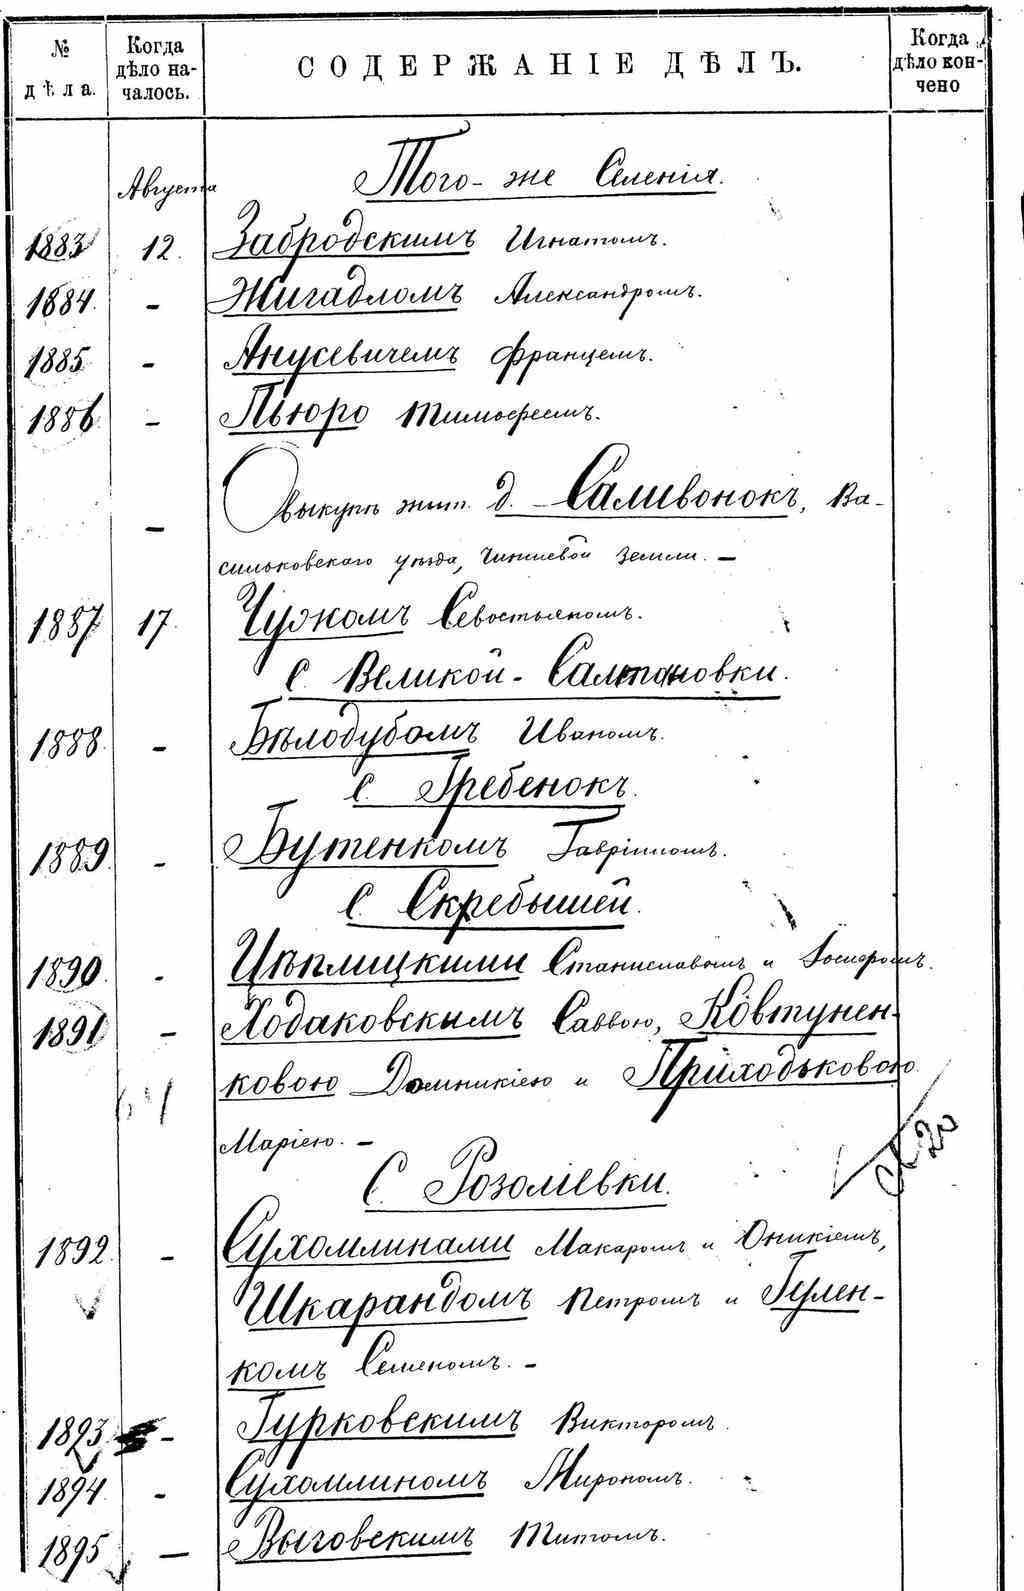 № дѣла.
Когда дѣло началось.
СОДЕРЖАНІЕ ДѢЛЪ.
Когда дѣло кончено
Августа
Того-же Селенія.
1883 12. Забродскимъ Игнатомъ.
1884. - Жигадломъ Александромъ.
1885 - Янусевичемъ Францемъ.
1886 - Пьюро Тимофеемъ.
- О выкупѣ жит. д. - Саливонокъ, Ва-
сильковскаго уѣзда, Чиншевой Земли. -
1887 17. Чужкомъ Севостьяномъ.
С. Великой-Салтановки.
1888. - Бѣлодубомъ Иваномъ.
С. Гребенокъ.
1889. - Бутенкомъ Гавріиломъ.
С. Скребышей.
1890. - Цѣплицкими Станиславомъ и Іосифомъ.
1891 - Ходаковскимъ Саввою, Ковтунен-
ковою Домникіею и Приходьковою
Маріею. -
С. Розаліевки.
1892. - Сухомлинами Макаромъ и Оникіемъ,
Шкарандомъ Петромъ и Гулен-
комъ Семеномъ. -
1893 - Гурковскимъ Викторомъ.
1894. - Сухомлиномъ Мирономъ.
1895 - Выговскимъ Титомъ.